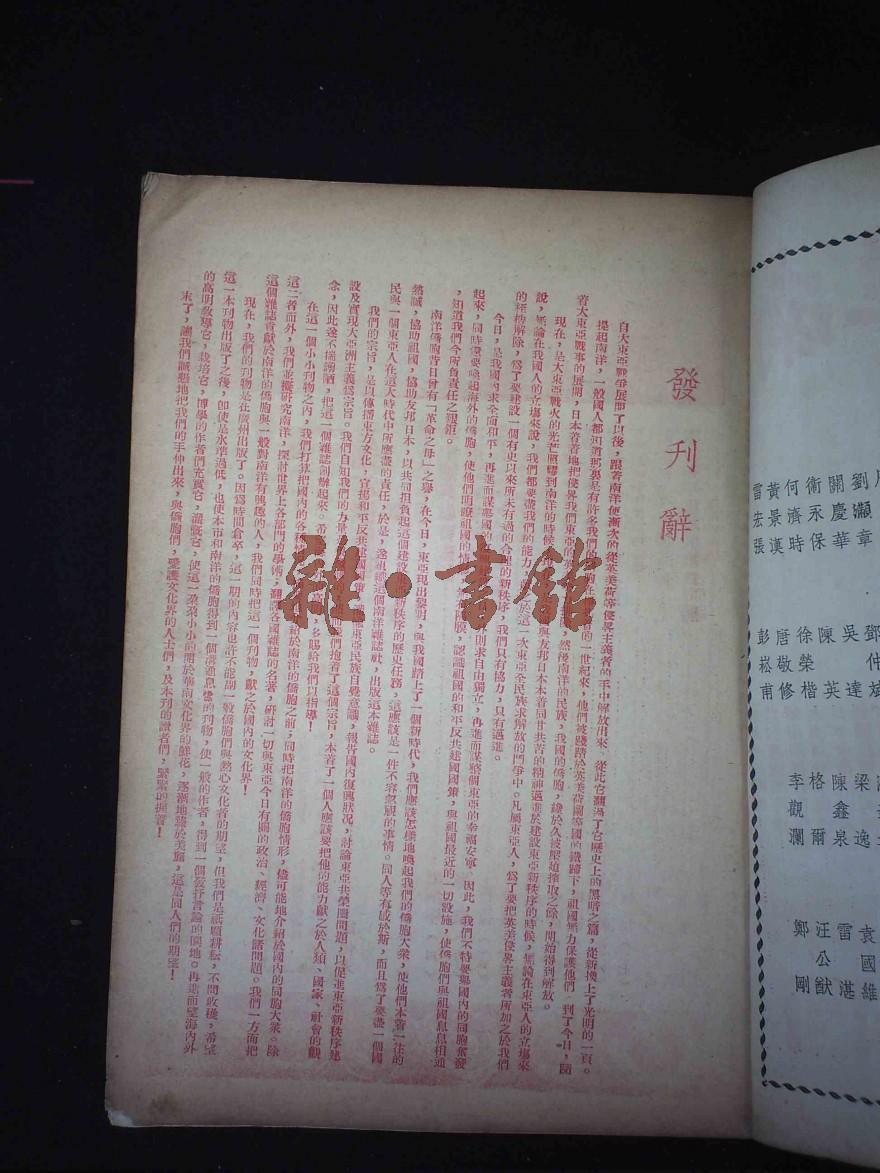 發刊辭
自大東亞戰爭展開了以後，跟著南洋便漸次的從英美荷等侵界主義者的手中解放出來，從此它翻過了它歷史上的黑暗之篇，從新換上了光明的一頁。
提起南洋，一般國人都知道那裏是有許多我們的僑胞在 的一世紀來，他們被踐踏於英美荷蘭等國的鐵蹄下，祖國無力保護他們，到了今日，隨
着大東亞戰事的展開，日本着着地把侵界我們東亞的英 ，然後南洋的民族，我國的僑胞，纔於久被壓迫搾取之餘，開始得到解放。
現在，是大東亞戰火的光芒照耀到南洋的時候， 與友邦日本本着同甘共苦的精神邁進於建設東亞新秩序的時候，無論在東亞人的立場來
說，無論在我國人的立場來說，我們都要盡我們的能力， 於這一次東亞全民族求解放的鬥爭中。凡屬東亞人，爲了要把英美侵界主義者所加之於我們
的桎梏解除，爲了要建設一個有史以來所未有過的合理的新秩序，我們只有協力，只有邁進。
今日，是我國內求全面和平，再進而謀舉國的 外則求自由獨立，再進而謀整個東亞的幸福安寧。因此，我們不特要舉國內的同胞奮發
起來，同時還要喚起海外的僑胞，使他們明瞭祖國的 ，認識祖國的和平反共建國國策，與祖國最近的一切設施，使僑胞們與祖國息息相通
，知道我們今所負責任之艱鉅。
南洋僑胞昔日曾有「革命之母」之譽，在今日，東亞現出黎明，與我國踏上了一個新時代，我們應該怎樣地喚起我們的僑胞大衆，使他們本着一往的
熱誠，協助祖國，協助友邦日本，以共同担負起這個建設東亞新秩序的歷史任務，這應該是一件不容忽視的事情。同人等有感於斯，而且爲了要盡一個國
民與一個東亞人在這大時代中所應盡的責任，於是，遂組織這個南洋雜誌社，出版這本雜誌。
我們的宗旨，是以傳播東方文化，宣揚和平反共建國國策， 東亞民族自覺意識，報告國內復興狀況，討論東亞共榮圈問題，以促進東亞新秩序建
設及實現大亞洲主義爲宗旨。我們自知我們的力量 我們抱着了這個宗旨，本着了一個人應該要把他的能力獻之於人類、國家、社會的觀
念，因此遂不揣謭陋，把這一個雜誌創辦起來。希 多賜給我們以指導！
在這一個小小刊物之內，我們打算把國內的各種 紹於南洋的僑胞之前，同時把南洋的僑胞情形，儘可能地介紹於國內的同胞大衆。除
這二者而外，我們並擬研究南洋，探討世界上各部門的學術，翻譯各國雜誌的名著，研討一切與東亞今日有關的政治、經濟、文化諸問題。我們一方面把
這個雜誌貢獻於南洋的僑胞與一般對南洋有興趣的人，我們同時把這一個刊物，獻之於國內的文化界！
現在，我們的刊物是在廣州出版了。因爲時間倉卒，這一期的內容也許不能副一般僑胞們與熱心文化者的期望，但我們是祇顧耕耘，不問收穫，希望
這一本刊物出版了之後，卽使是水準過低，也使本市和南洋的僑胞得到一個溝通息息的刊物，使一般的作者，得到一個發抒言論的園地。再進而望海內外
的高明教導它，栽培它，博學的作者們充實它，灌漑它，使這一朶朶小小的開於華南文化界的鮮花，逐漸地臻於美麗，這是同人們的期望！
末了，讓我們誠懇地把我們的手伸出來，與僑胞們，愛護文化界的人士們，及本刊的讀者們，緊緊的握着！
雜·書館
劉慶華
關永保
衛濟時
何景漢
黃宏張
雷
吳達
陳榮英
徐楷
唐敬修
彭崧甫
梁逸
陳鑫泉
格爾
李觀瀾
袁國維
雷湛
汪公猷
鄭剛